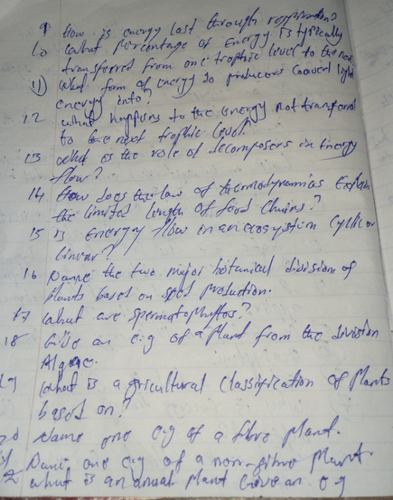 9 How is energy lost through respiration?
10 What percentage of Energy is typically
transferred from one trophic level to the next
11) What form of energy do producers convert light
energy into?
12 what happens to the energy not transferred
to the next trophic level?
13 what is the role of decomposers in Energy
flow?
14 How does the law of thermodynamics Explain
the limited length of food chains?
15 is Energy flow in an ecosystem Cyclic or
linear?
16 Name the two major botanical division of
plants based on seed production.
17 what are spermatophytes?
18 Give an e.g of a plant from the division
Algae.
19 what is agricultural classification of plants
based on?
20 Name one e.g of a fibre plant.
21 Name one e.g of a non-fibre plant.
2 what is an annual plant Give an e.g